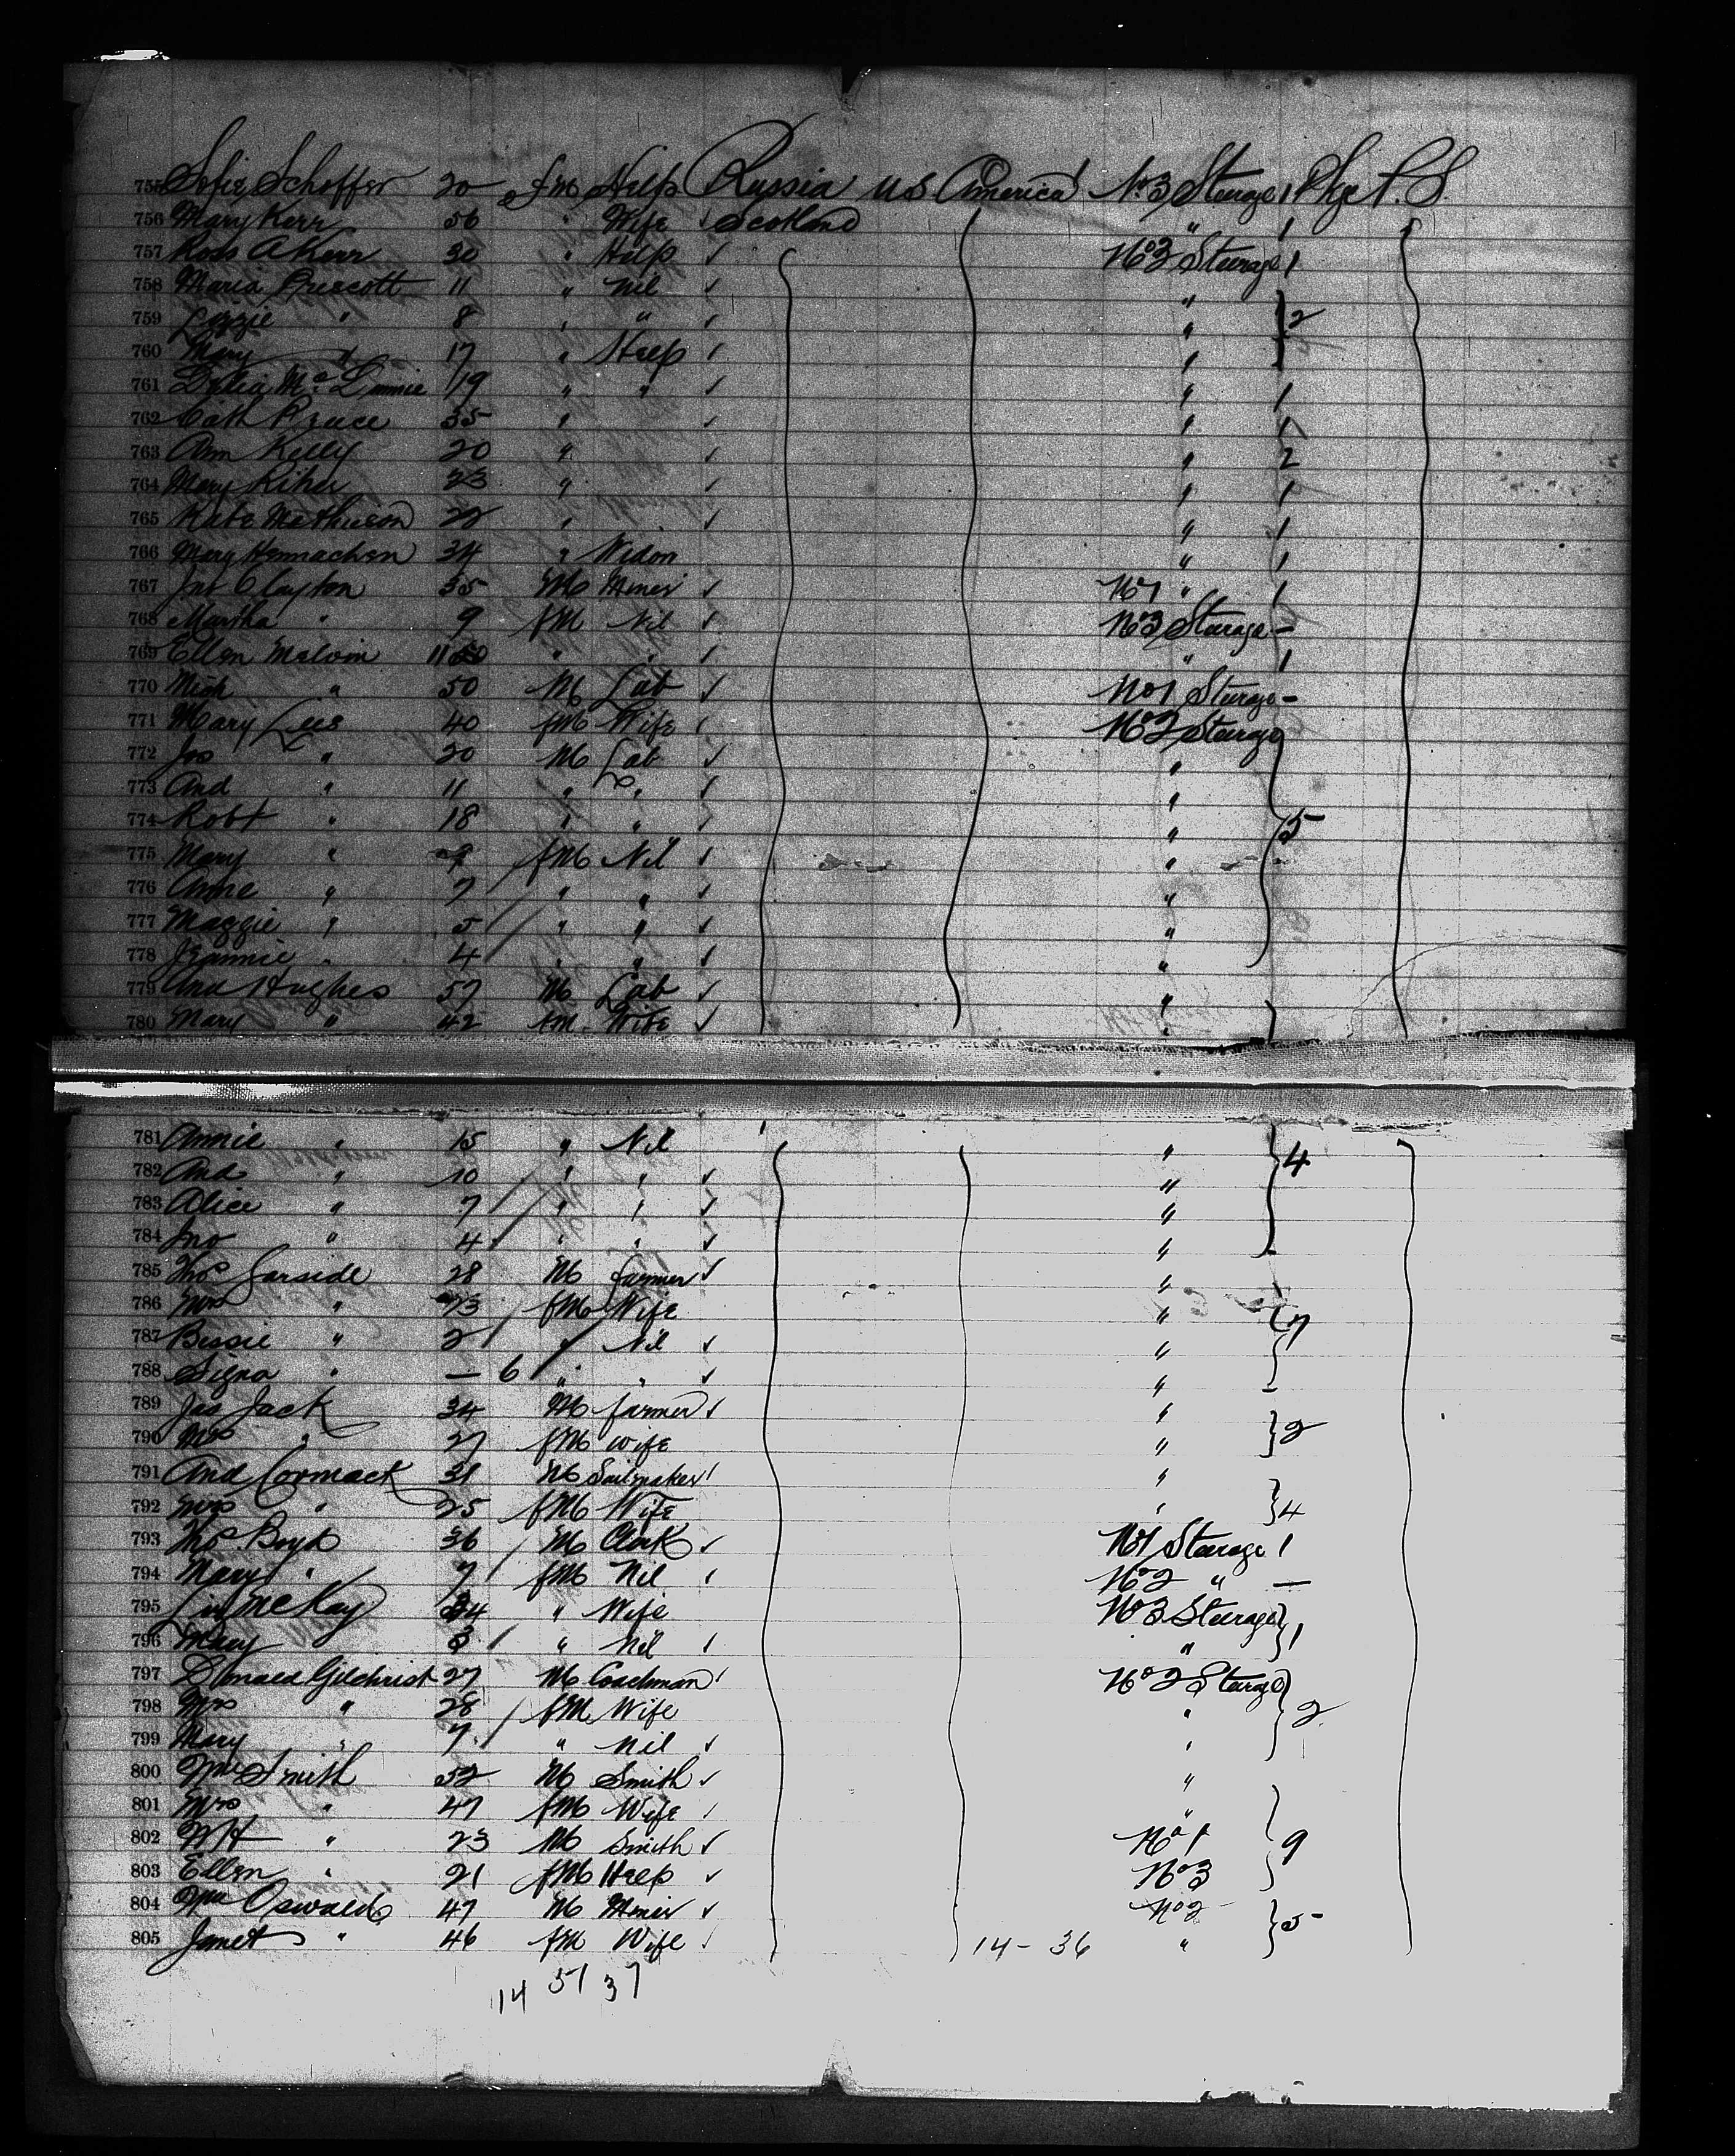 755 Sofie Schoffer 20 fm Help Russia U.S. America No 3 Steerage 1 Pkge P.S.
756 Mary Kerr 56 " Wife Scotland " 1
757 Ross A Kerr 30 " Help ✓ No 3 Steerage 1
758 Maria Prescott 11 " Nil ✓ "
759 Lizzie " 8 " " ✓ " 2
760 Mary " 17 " Help ✓ "
761 Lydia 19 " " ✓ " 1
762 Cath 35 " ✓ " 1
763 Ann Kelly 20 " ✓ " 2
764 Mary 23 " ✓ " 1
765 Kate Methueson " ✓ " 1
766 Mary 34 " Widow " 1
767 Jno Clayton 35 M Miner ✓ No 1 " 1
768 Martha " 9 fM Nil ✓ No 3 Steerage -
769 Ellen Melvin 11 " " ✓ " 1
770 Mich " 50 M Lab ✓ No 1 Steerage -
771 Mary Lees 40 fM Wife No 2 Steerage
772 Jos " 20 M Lab ✓ "
773 And " 11 " " ✓ "
774 Robt " 18 " " ✓ " 5
775 Mary " 9 fM Nil ✓ "
776 Annie " 7 " " ✓ "
777 Maggie " 5 " " ✓ "
778 Jeannie " 4 " " ✓ "
779 And Hughes 57 M Lab ✓ "
780 Mary " 42 fM Wife ✓ "
781 Annie " 15 " Nil "
782 And " 10 " " ✓ " 4
783 Alice " 7 " " ✓ "
784 Jno " 4 " " ✓ "
785 Thos Garside 28 M farmer ✓ "
786 Mrs " 23 fM Wife " 7
787 Bessie " 2 " Nil ✓ "
788 Signa " - 6 " " ✓ "
789 Jas Jack 34 M farmer ✓ "
790 Mrs " 27 fM Wife " 2
791 And Cormack 31 M Sailmaker "
792 Mrs " 25 fM Wife " 4
793 Thos Boyd 36 M Clerk ✓ No 1 Steerage 1
794 Mary " 7 fM Nil No 2 " -
795 McKay 34 " Wife No 3 Steerage
796 Mary 3 " Nil " 1
797 Donald Gilchrist 27 M Coachman No 2 Steerage
798 Mrs " 28 fM Wife " 2
799 Mary " 7 " Nil ✓ "
800 Wm Smith 52 M Smith ✓ "
801 Mrs " 47 fM Wife "
802 WH " 23 M Smith ✓ No 1 9
803 Ellen " 21 fM Help ✓ No 3
804 Wm Oswald 47 M Miner ✓ No 2 5
805 Janet " 46 fM Wife 14 - 36 "
14 51 37